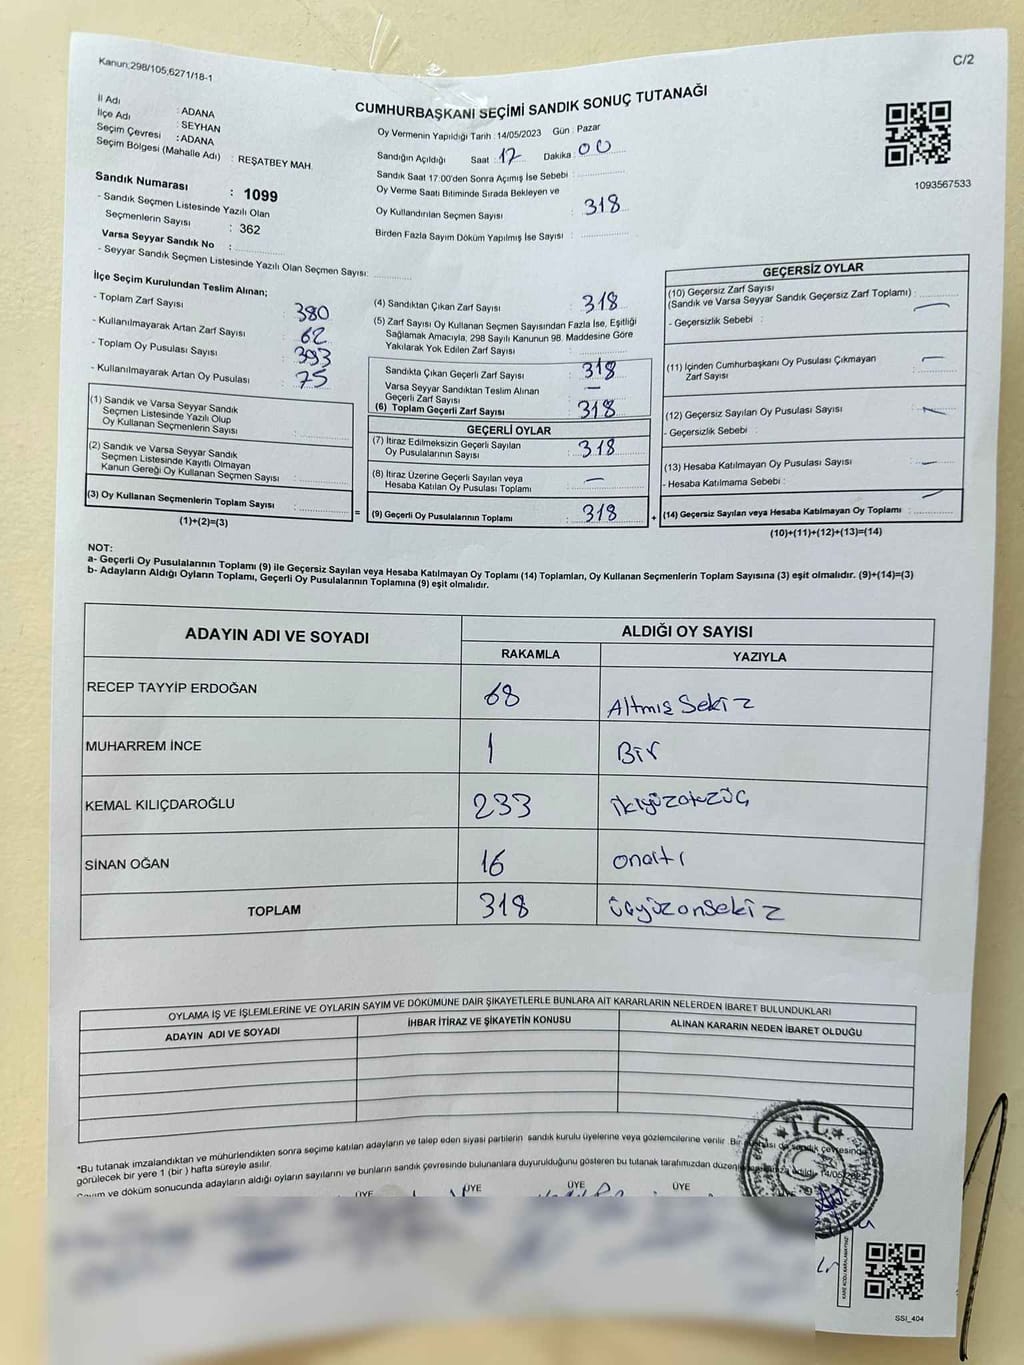 Kanun;298/105,6271/18-1
C/2
CUMHURBAŞKANI SEÇİMİ SANDIK SONUÇ TUTANAĞI
İl Adı : ADANA
İlçe Adı : SEYHAN
Seçim Çevresi : ADANA
Seçim Bölgesi (Mahalle Adı) : REŞATBEY MAH.
Sandık Numarası : 1099
- Sandık Seçmen Listesinde Yazılı Olan
Seçmenlerin Sayısı : 362
Varsa Seyyar Sandık No :
- Seyyar Sandık Seçmen Listesinde Yazılı Olan Seçmen Sayısı:
Oy Vermenin Yapıldığı Tarih :14/05/2023 Gün : Pazar
Sandığın Açıldığı Saat : 17 Dakika : 00
Sandık Saat 17:00'den Sonra Açımış İse Sebebi :
Oy Verme Saati Bitiminde Sırada Bekleyen ve
Oy Kullandırılan Seçmen Sayısı : 318
Birden Fazla Sayım Döküm Yapılmış İse Sayısı :
1093567533
İlçe Seçim Kurulundan Teslim Alınan;
- Toplam Zarf Sayısı : 380
- Kullanılmayarak Artan Zarf Sayısı : 62
- Toplam Oy Pusulası Sayısı : 393
- Kullanılmayarak Artan Oy Pusulası : 75
(1) Sandık ve Varsa Seyyar Sandık
Seçmen Listesinde Yazılı Olup
Oy Kullanan Seçmenlerin Sayısı :
(2) Sandık ve Varsa Seyyar Sandık
Seçmen Listesinde Kayıtlı Olmayan
Kanun Gereği Oy Kullanan Seçmen Sayısı :
(3) Oy Kullanan Seçmenlerin Toplam Sayısı :
(1)+(2)=(3)
(4) Sandıktan Çıkan Zarf Sayısı : 318
(5) Zarf Sayısı Oy Kullanan Seçmen Sayısından Fazla İse, Eşitliği
Sağlamak Amacıyla, 298 Sayılı Kanunun 98. Maddesine Göre
Yakılarak Yok Edilen Zarf Sayısı :
Sandıkta Çıkan Geçerli Zarf Sayısı : 318
Varsa Seyyar Sandıktan Teslim Alınan
Geçerli Zarf Sayısı : —
(6) Toplam Geçerli Zarf Sayısı : 318
GEÇERLİ OYLAR
(7) İtiraz Edilmeksizin Geçerli Sayılan
Oy Pusulalarının Sayısı : 318
(8) İtiraz Üzerine Geçerli Sayılan veya
Hesaba Katılan Oy Pusulası Toplamı : —
= (9) Geçerli Oy Pusulalarının Toplamı : 318 +
GEÇERSİZ OYLAR
(10) Geçersiz Zarf Sayısı
(Sandık ve Varsa Seyyar Sandık Geçersiz Zarf Toplamı) : —
- Geçersizlik Sebebi :
(11) İçinden Cumhurbaşkanı Oy Pusulası Çıkmayan
Zarf Sayısı : —
(12) Geçersiz Sayılan Oy Pusulası Sayısı : —
- Geçersizlik Sebebi :
(13) Hesaba Katılmayan Oy Pusulası Sayısı : —
- Hesaba Katılmama Sebebi :
(14) Geçersiz Sayılan veya Hesaba Katılmayan Oy Toplamı : —
(10)+(11)+(12)+(13)=(14)
NOT:
a- Geçerli Oy Pusulalarının Toplamı (9) ile Geçersiz Sayılan veya Hesaba Katılmayan Oy Toplamı (14) Toplamları, Oy Kullanan Seçmenlerin Toplam Sayısına (3) eşit olmalıdır. (9)+(14)=(3)
b- Adayların Aldığı Oyların Toplamı, Geçerli Oy Pusulalarının Toplamına (9) eşit olmalıdır.
ADAYIN ADI VE SOYADI ALDIĞI OY SAYISI
RAKAMLA YAZIYLA
RECEP TAYYİP ERDOĞAN 68 Altmış Sekiz
MUHARREM İNCE 1 Bir
KEMAL KILIÇDAROĞLU 233 ikiyüzotuzüç
SİNAN OĞAN 16 onaltı
TOPLAM 318 üçyüzonsekiz
OYLAMA İŞ VE İŞLEMLERİNE VE OYLARIN SAYIM VE DÖKÜMÜNE DAİR ŞİKAYETLERLE BUNLARA AİT KARARLARIN NELERDEN İBARET BULUNDUKLARI
ADAYIN ADI VE SOYADI İHBAR İTİRAZ VE ŞİKAYETİN KONUSU ALINAN KARARIN NEDEN İBARET OLDUĞU
*Bu tutanak imzalandıktan ve mühürlendikten sonra seçime katılan adayların ve talep eden siyasi partilerin sandık kurulu üyelerine veya gözlemcilerine verilir. Bir sandık çevresinde
görülecek bir yere 1 (bir ) hafta süreyle asılır.
Sayım ve döküm sonucunda adayların aldığı oyların sayılarını ve bunların sandık çevresinde bulunanlara duyurulduğunu gösteren bu tutanak tarafımızdan
ÜYE ÜYE ÜYE ÜYE
T.C.
SSI_404